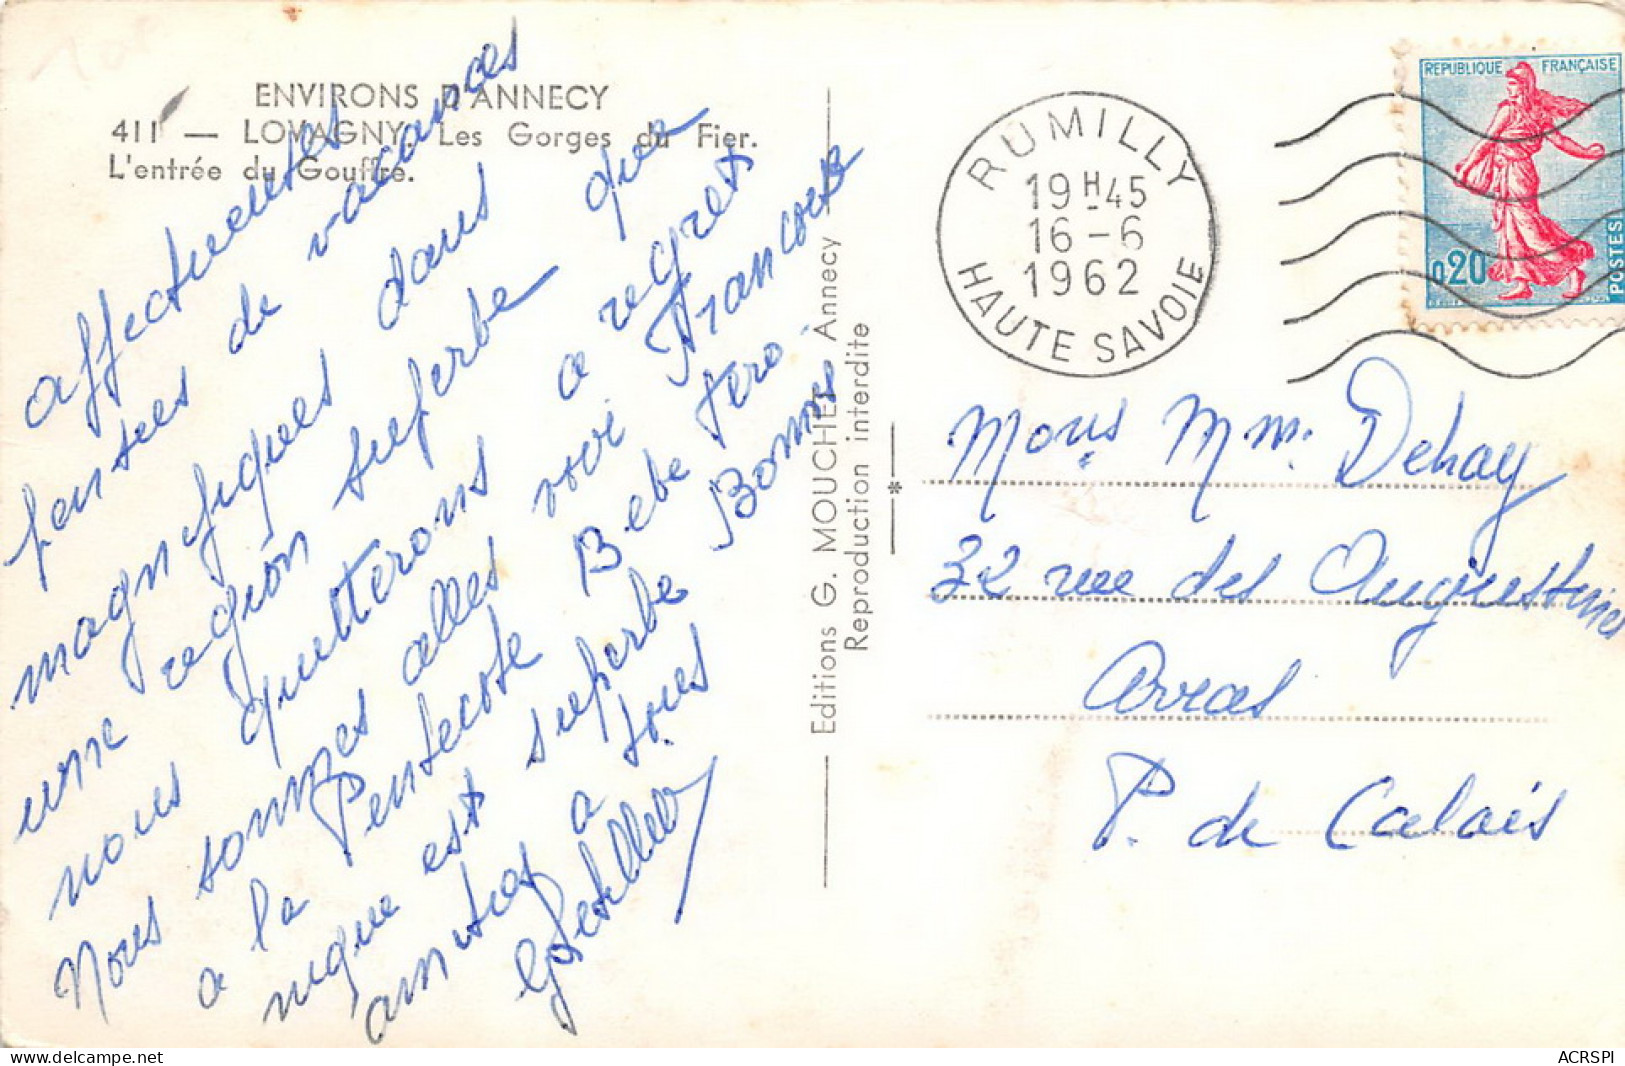 ENVIRONS D'ANNECY
411 — LOVAGNY. Les Gorges du Fier.
L'entrée du Gouffre.
affectueuses
pensées de vacances
magnefiques dans
une region superbe que
nous quitterons a regret
Nous sommes alles voir Francoise
a la Pentecote Bebe Vero
nique est superbe Bonnes
amities a tous
Editions G. MOUCHET Annecy
Reproduction interdite
RUMILLY
19 H 45
16 - 6
1962
HAUTE SAVOIE
REPUBLIQUE FRANÇAISE
0,20
POSTES
Mous Mm. Dehay
32 rue des Augustines
Arras
P. de Calais
delcampe.net
ACRSPI